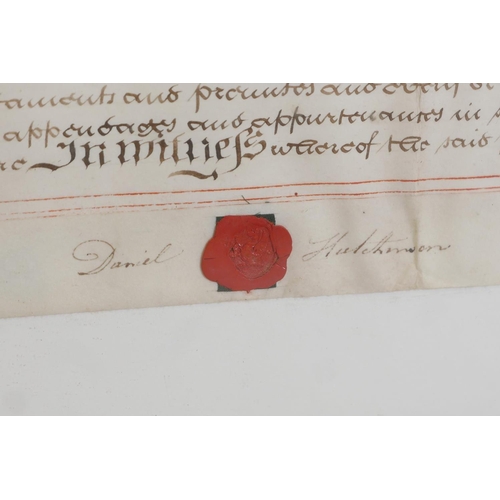 and premises and every
appendages and appurtenances in
In Witness whereof the said
Daniel Hutchinson